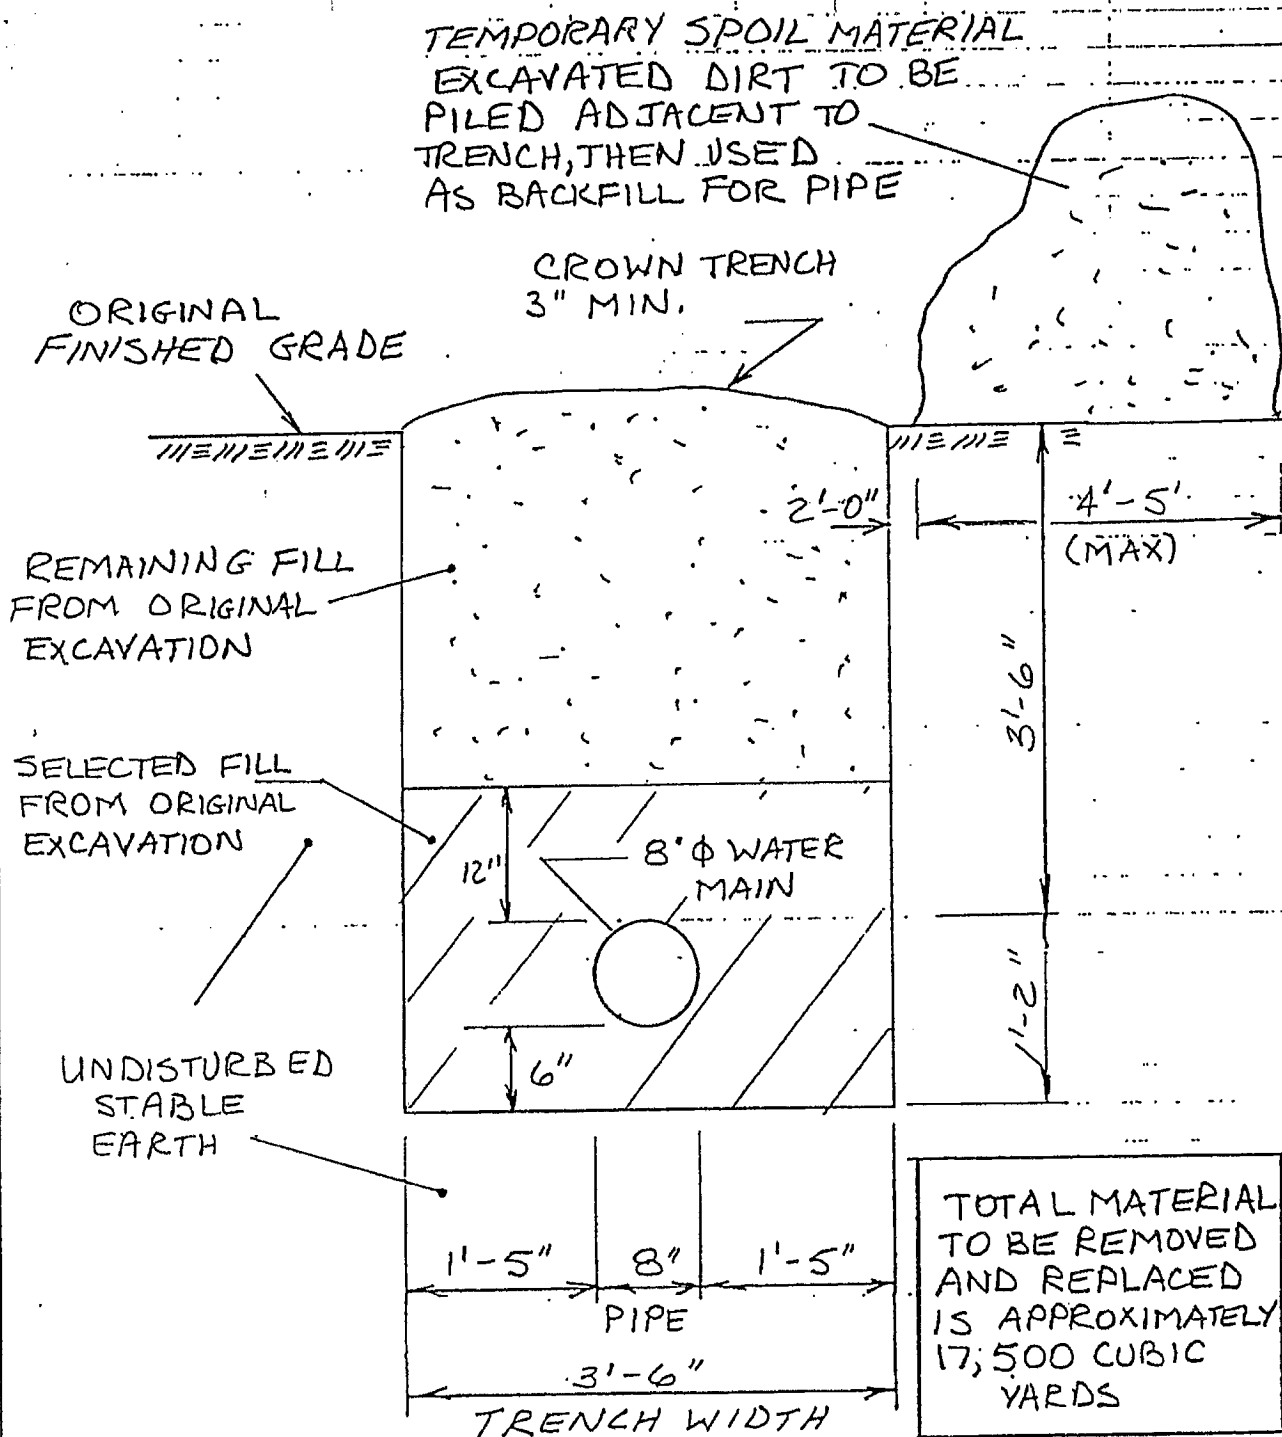 TEMPORARY SPOIL MATERIAL
EXCAVATED DIRT TO BE
PILED ADJACENT TO
TRENCH, THEN USED
AS BACKFILL FOR PIPE
CROWN TRENCH
3" MIN.
ORIGINAL
FINISHED GRADE
2'-0"
4'-5'
(MAX)
REMAINING FILL
FROM ORIGINAL
EXCAVATION
3'-6"
SELECTED FILL
FROM ORIGINAL
EXCAVATION
12"
8" Φ WATER
MAIN
1'-2"
6"
UNDISTURBED
STABLE
EARTH
1'-5"
8"
1'-5"
PIPE
3'-6"
TRENCH WIDTH
TOTAL MATERIAL
TO BE REMOVED
AND REPLACED
IS APPROXIMATELY
17,500 CUBIC
YARDS